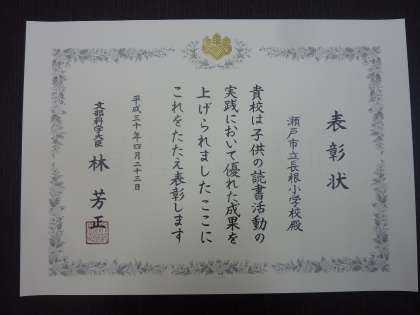 表彰状
瀬戸市立長根小学校殿
貴校は子供の読書活動の
実践において優れた成果を
上げられましたここに
これをたたえ表彰します
平成三十年四月二十三日
文部科学大臣 林芳正